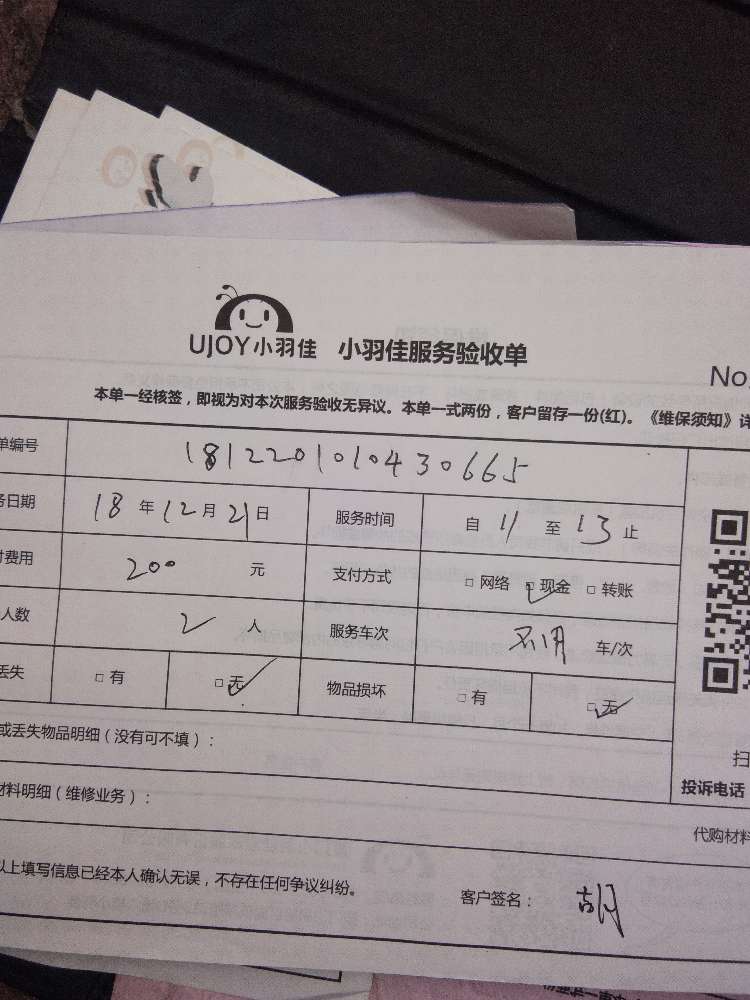 UJOY小羽佳 小羽佳服务验收单
No.
本单一经核签，即视为对本次服务验收无异议。本单一式两份，客户留存一份(红)。《维保须知》详
单编号 1812201010430665
务日期 18 年 12 月 21 日 服务时间 自 11 至 13 止
付费用 200 元 支付方式 □ 网络 □ 现金 □ 转账
人数 2 人 服务车次 不用 车/次
丢失 □ 有 □ 无 物品损坏 □ 有 □ 无
扫
或丢失物品明细（没有可不填）：
投诉电话
材料明细（维修业务）：
代购材料
以上填写信息已经本人确认无误，不存在任何争议纠纷。 客户签名： 胡